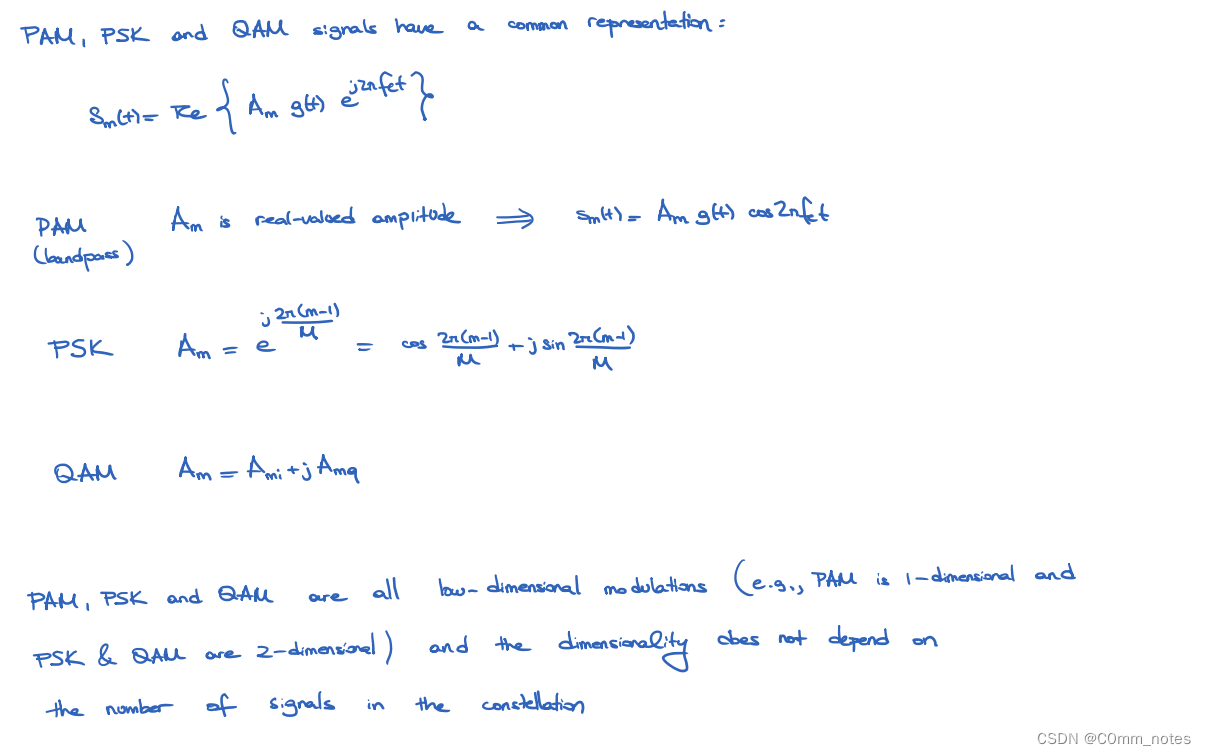 PAM, PSK and QAM signals have a common representation:
Sm(t) = Re { Am g(t) e^{j2πfct} }
PAM Am is real-valued amplitude ⟹ sm(t) = Am g(t) cos2πfct
(bandpass)
PSK Am = e^{j 2π(m-1)/M} = cos 2π(m-1)/M + j sin 2π(m-1)/M
QAM Am = Ami + j Amq
PAM, PSK and QAM are all low-dimensional modulations (e.g., PAM is 1-dimensional and
PSK & QAM are 2-dimensional) and the dimensionality does not depend on
the number of signals in the constellation
CSDN @C0mm_notes